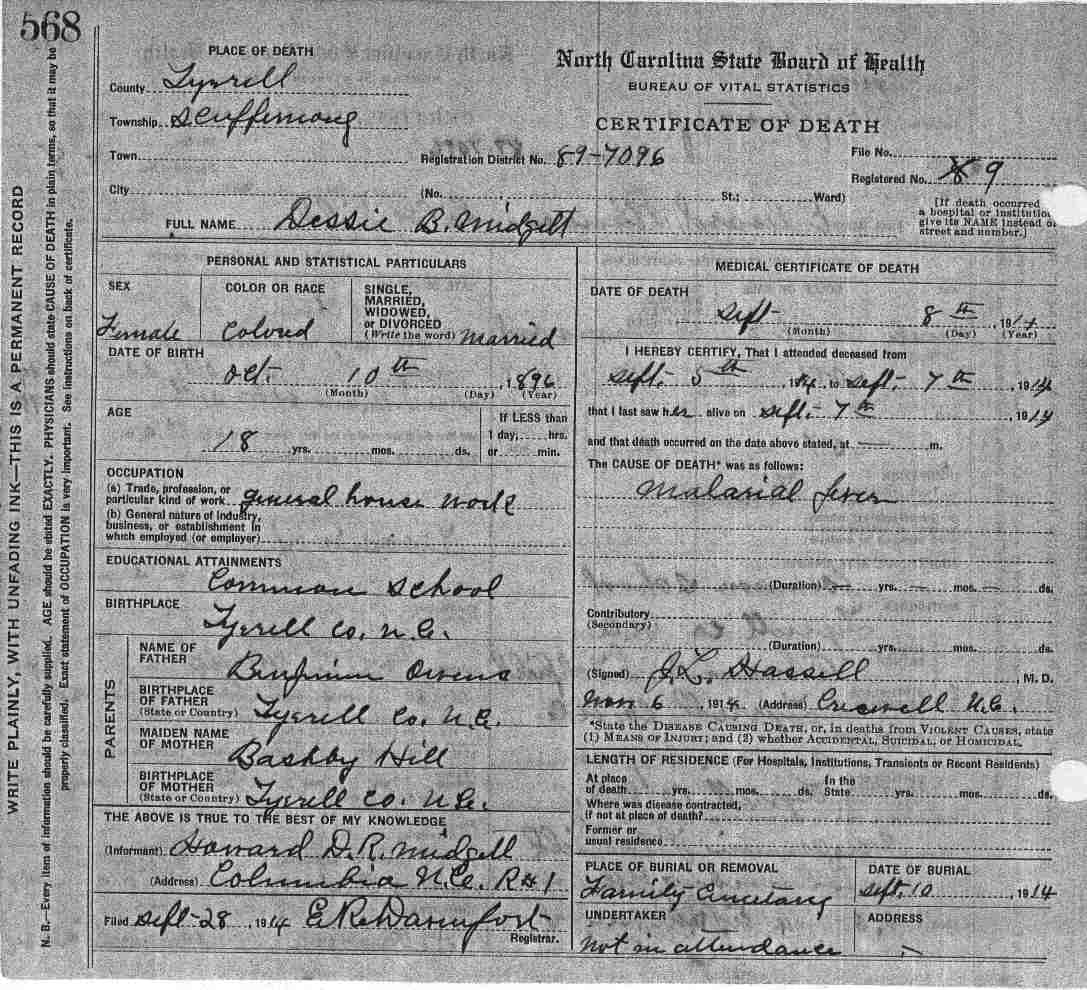 568
WRITE PLAINLY, WITH UNFADING INK—THIS IS A PERMANENT RECORD
N. B.—Every item of information should be carefully supplied. AGE should be stated EXACTLY. PHYSICIANS should state CAUSE OF DEATH in plain terms, so that it may be
properly classified. Exact statement of OCCUPATION is very important. See instructions on back of certificate.
PLACE OF DEATH
County Tyrrell
Township Scuppernong
Town
City
North Carolina State Board of Health
BUREAU OF VITAL STATISTICS
CERTIFICATE OF DEATH
Registration District No. 89-7096
File No.
Registered No. 9
(No. , St.; Ward)
[If death occurred
a hospital or institution
give its NAME instead of
street and number.]
FULL NAME Dessie B. Midgett
PERSONAL AND STATISTICAL PARTICULARS
SEX
Female
COLOR OR RACE
Colored
SINGLE,
MARRIED,
WIDOWED,
or DIVORCED
(Write the word) Married
DATE OF BIRTH
Oct. 10th , 1896
(Month) (Day) (Year)
AGE
18 yrs. mos. ds.
If LESS than
1 day, hrs.
or min.
OCCUPATION
(a) Trade, profession, or
particular kind of work general house work
(b) General nature of industry,
business, or establishment in
which employed (or employer)
EDUCATIONAL ATTAINMENTS
Common School
BIRTHPLACE
Tyrrell Co. N.C.
PARENTS
NAME OF
FATHER
Benjimin Owens
BIRTHPLACE
OF FATHER
(State or Country) Tyrrell Co. N.C.
MAIDEN NAME
OF MOTHER
Bashby Hill
BIRTHPLACE
OF MOTHER
(State or Country) Tyrrell Co. N.C.
THE ABOVE IS TRUE TO THE BEST OF MY KNOWLEDGE
(Informant) Howard D. R. Midgett
(Address) Columbia N.C. R#1
Filed Sept-28, 1914 E R Davenport
Registrar.
MEDICAL CERTIFICATE OF DEATH
DATE OF DEATH
Sept- 8th , 1914
(Month) (Day) (Year)
I HEREBY CERTIFY, That I attended deceased from
Sept. 5th , 1914, to Sept. 7th , 1914
that I last saw her alive on Sept. 7th , 1914
and that death occurred on the date above stated, at — m.
The CAUSE OF DEATH* was as follows:
Malarial fever
(Duration) — yrs. — mos. — ds.
Contributory
(Secondary)
(Duration) yrs. mos. ds.
(Signed) J. L. Hassell , M. D.
Nov 6 , 1914 (Address) Creswell N.C.
*State the DISEASE CAUSING DEATH, or, in deaths from VIOLENT CAUSES, state
(1) MEANS OF INJURY; and (2) whether ACCIDENTAL, SUICIDAL, or HOMICIDAL.
LENGTH OF RESIDENCE (For Hospitals, Institutions, Transients or Recent Residents)
At place
of death yrs. mos. ds.
In the
State yrs. mos. ds.
Where was disease contracted,
if not at place of death?
Former or
usual residence
PLACE OF BURIAL OR REMOVAL
Family
DATE OF BURIAL
Sept. 10 1914
UNDERTAKER
not in attendance
ADDRESS